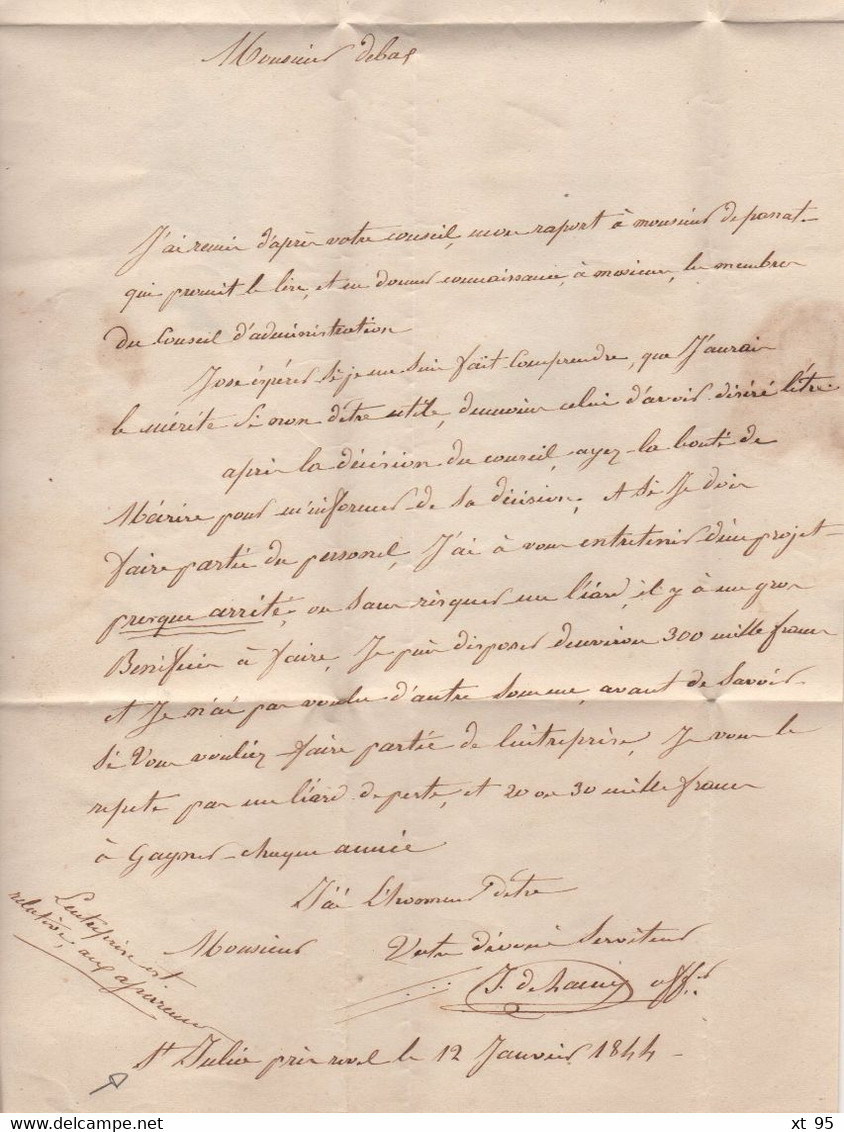 Monsieur debas
J'ai remis d'après votre conseil, mon raport à monsieur de panat
qui promit le lire, et en donner connaissance, à mesieurs, les membres
du Conseil d'administration
J'ose éspérer si je me suis fait Comprendre, que J'aurais
le mérite Si non d'être utile, dumoins celui d'avoir désiré l'étre
après la décision du conseil, ayez-la bonté de
M'écrire pour m'informer de sa décision, et Si Je dois
faire partie du personel, J'ai à vous entretenir d'un projet
presque arrêté, ou sans risquer un liard, il y à un gros
Bénifice à faire, Je puis disposer denviron 300 mille francs
et Je n'ai pas voulu d'autre Somme, avant de Savoir
Si Vous vouliez faire partie de l'entreprise, Je vous le
repete pas un liard de perte, et 20 ou 30 mille francs
à Gagner chaque année
J'ai L'honneur d'être
Monsieur Votre dévoué Serviteur
off.er
L'entreprise est
relative, aux
St Julia près revel le 12 Janvier 1844
xt 95